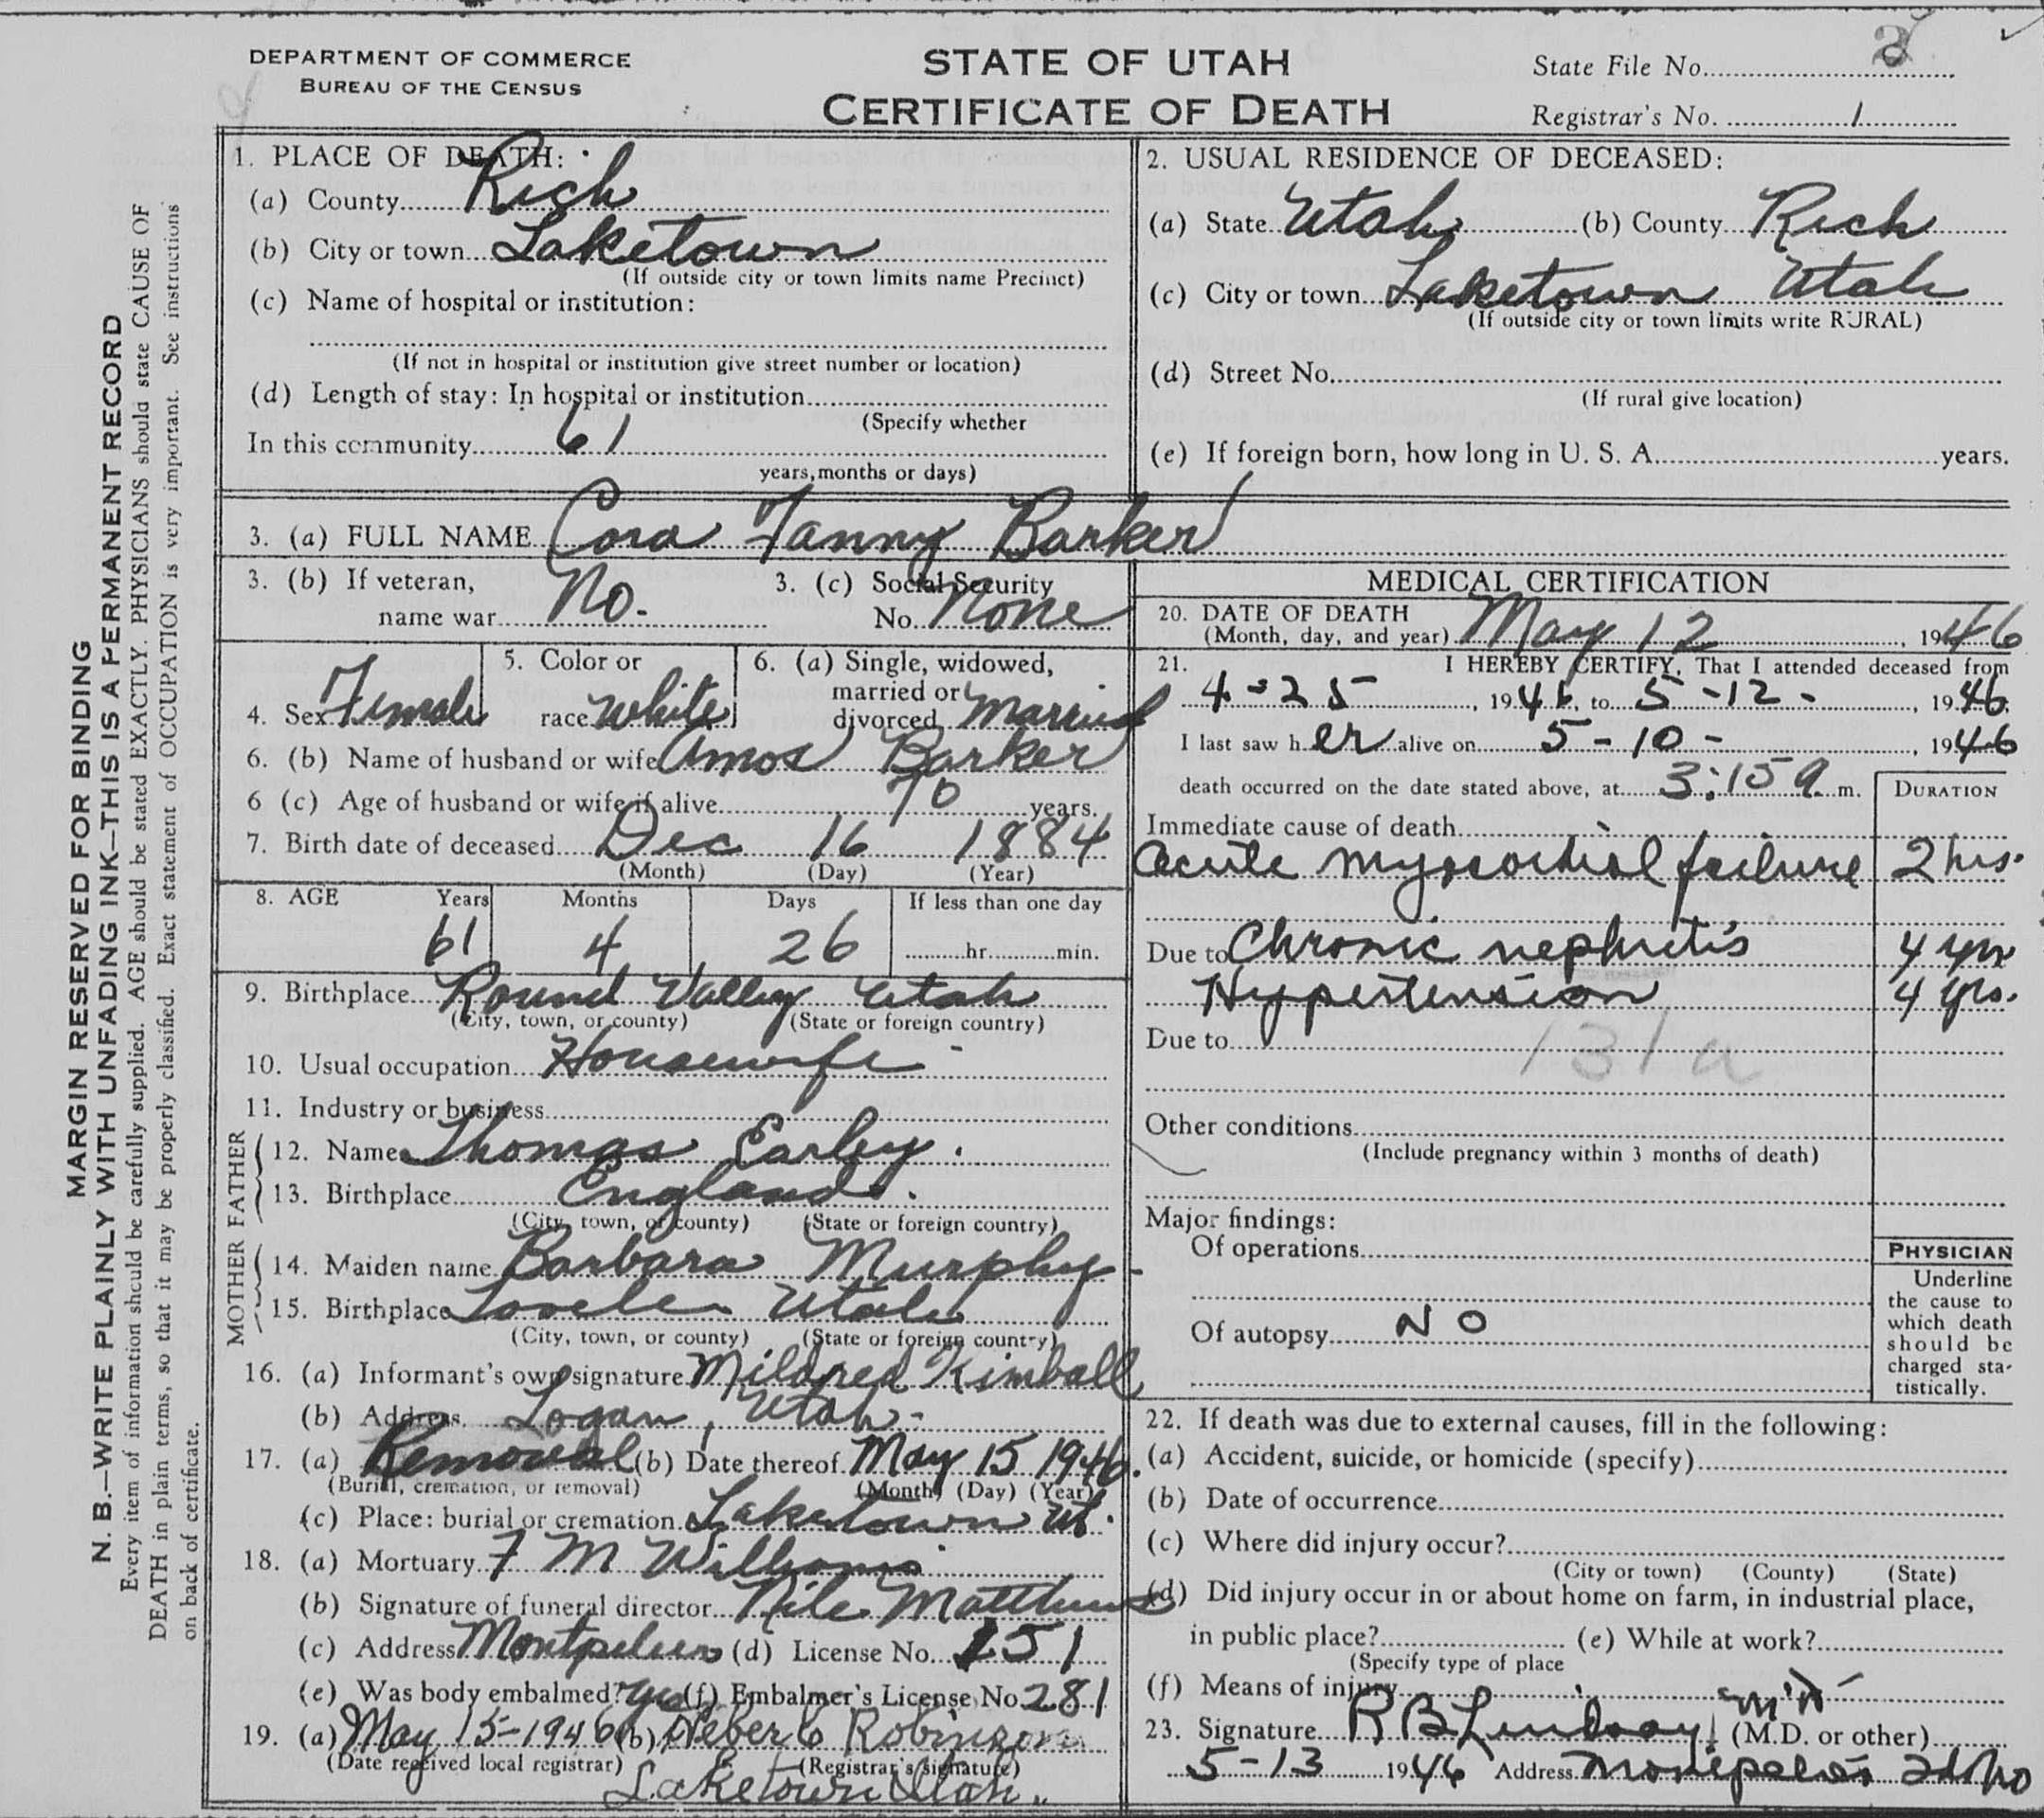 DEPARTMENT OF COMMERCE
BUREAU OF THE CENSUS
STATE OF UTAH
CERTIFICATE OF DEATH
State File No. 2
Registrar's No. 1
MARGIN RESERVED FOR BINDING
N. B.—WRITE PLAINLY WITH UNFADING INK—THIS IS A PERMANENT RECORD
Every item of information should be carefully supplied. AGE should be stated EXACTLY. PHYSICIANS should state CAUSE OF
DEATH in plain terms, so that it may be properly classified. Exact statement of OCCUPATION is very important. See instructions
on back of certificate.
1. PLACE OF DEATH:
(a) County Rich
(b) City or town Laketown
(If outside city or town limits name Precinct)
(c) Name of hospital or institution:
(If not in hospital or institution give street number or location)
(d) Length of stay: In hospital or institution
(Specify whether
In this community 61
years, months or days)
2. USUAL RESIDENCE OF DECEASED:
(a) State Utah (b) County Rich
(c) City or town Laketown Utah
(If outside city or town limits write RURAL)
(d) Street No.
(If rural give location)
(e) If foreign born, how long in U. S. A. years.
3. (a) FULL NAME Cora Fanny Barker
3. (b) If veteran, name war No.
3. (c) Social Security No. None
4. Sex Female
5. Color or race White
6. (a) Single, widowed, married or divorced Married
6. (b) Name of husband or wife Amos Barker
6 (c) Age of husband or wife if alive 70 years.
7. Birth date of deceased Dec 16 1884
(Month) (Day) (Year)
8. AGE Years Months Days If less than one day
61 4 26 hr. min.
9. Birthplace Round Valley Utah
(City, town, or county) (State or foreign country)
10. Usual occupation Housewife
11. Industry or business
FATHER
12. Name Thomas Earley
13. Birthplace England
(City, town, or county) (State or foreign country)
MOTHER
14. Maiden name Barbara Murphy
15. Birthplace Utah
(City, town, or county) (State or foreign country)
16. (a) Informant's own signature Mildred Kimball
(b) Address Logan, Utah
17. (a) Removal (b) Date thereof May 15 1946.
(Burial, cremation, or removal) (Month) (Day) (Year)
(c) Place: burial or cremation Laketown Ut.
18. (a) Mortuary F M Williams
(b) Signature of funeral director Nile Matthews
(c) Address Montpelier (d) License No. 151
(e) Was body embalmed? Yes (f) Embalmer's License No 281
19. (a) May 15-1946 (b) Heber C Robinson
(Date received local registrar) (Registrar's signature)
Laketown Utah.
MEDICAL CERTIFICATION
20. DATE OF DEATH
(Month, day, and year) May 12, 1946
21. I HEREBY CERTIFY, That I attended deceased from
4-25, 1946, to 5-12-, 1946
I last saw her alive on 5-10-, 1946
death occurred on the date stated above, at 3:15 a. m.
DURATION
Immediate cause of death
acute myocardial failure 2 hrs.
Due to Chronic nephritis 4 yrs
Hypertension 4 yrs.
Due to
131a
Other conditions
(Include pregnancy within 3 months of death)
Major findings:
Of operations
Of autopsy NO
PHYSICIAN
Underline
the cause to
which death
should be
charged sta-
tistically.
22. If death was due to external causes, fill in the following:
(a) Accident, suicide, or homicide (specify)
(b) Date of occurrence
(c) Where did injury occur?
(City or town) (County) (State)
(d) Did injury occur in or about home on farm, in industrial place,
in public place? (e) While at work?
(Specify type of place
(f) Means of injury
23. Signature R B Lindsay MD (M.D. or other)
5-13 1946 Address Montpelier Idaho